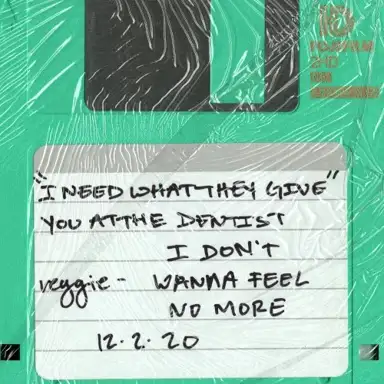 FUJIFILM
2HD
"I NEED WHAT THEY GIVE"
YOU AT THE DENTIST
I DON'T
veggie - WANNA FEEL
NO MORE
12.2.20